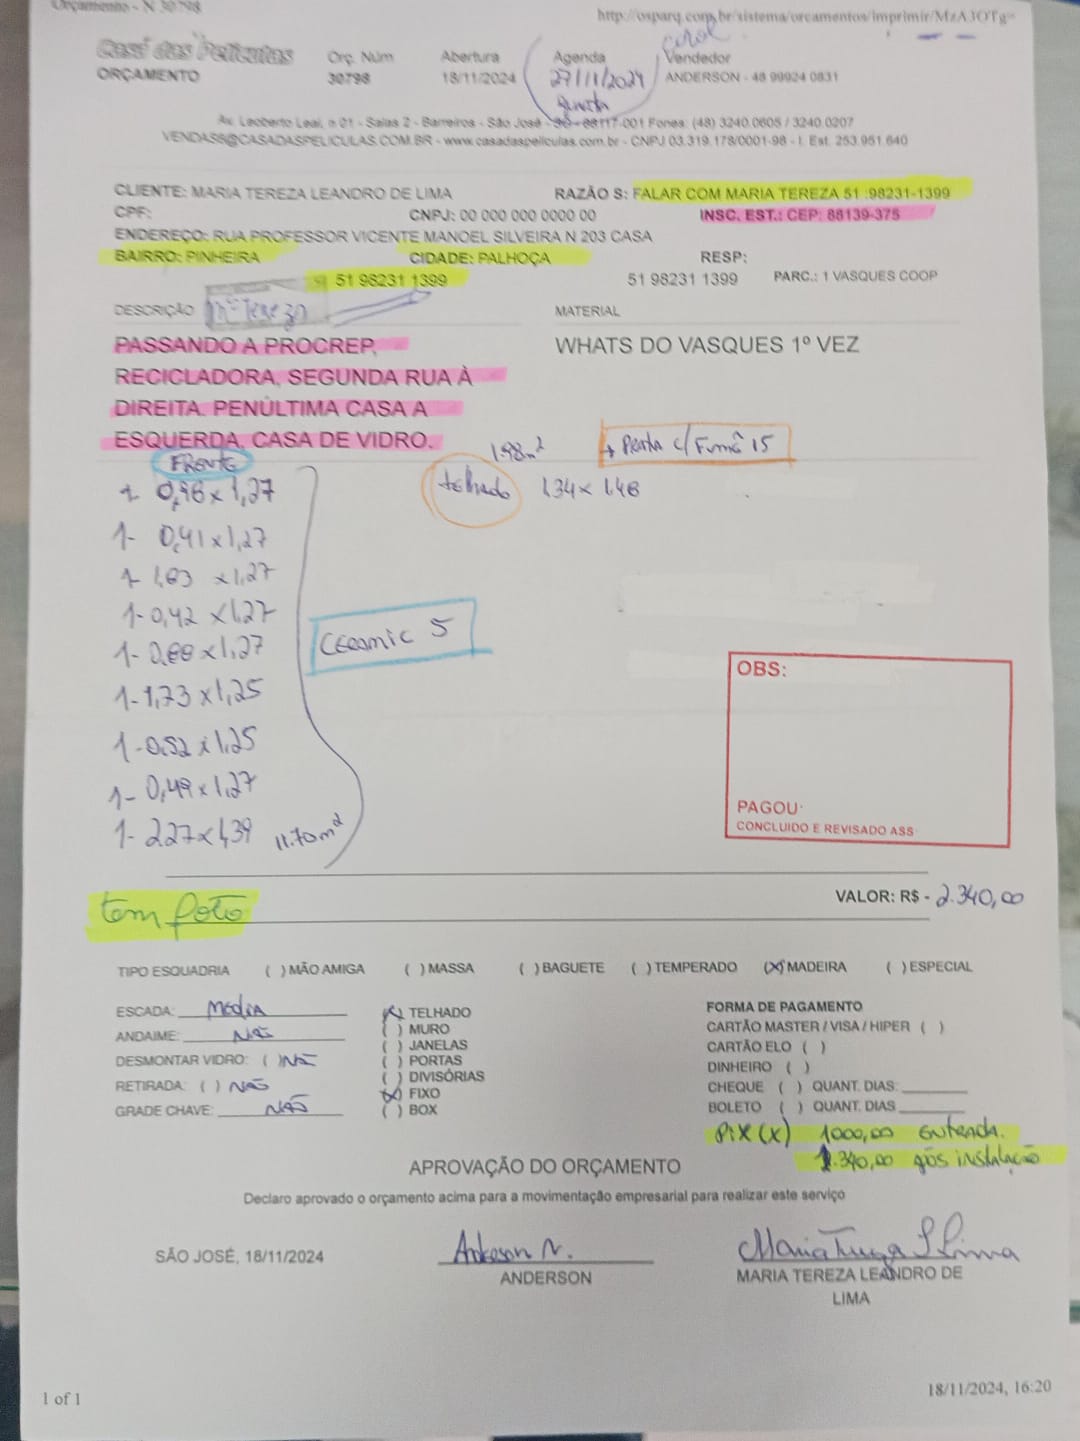 Orçamento - N 30798
http://osparq.com.br/sistema/orcamentos/imprimir/MzA3OTg=
Casa das Películas
ORÇAMENTO
Orç. Núm
30798
Abertura
18/11/2024
Agenda
27/11/2024
Quarta
Carol
Vendedor
ANDERSON - 48 99924 0831
Av. Leoberto Leal, n 01 - Salas 2 - Barreiros - São José - SC - 88117-001 Fones: (48) 3240.0605 / 3240.0207
VENDAS5@CASADASPELICULAS.COM.BR - www.casadaspeliculas.com.br - CNPJ 03.319.178/0001-98 - I. Est. 253.951.640
CLIENTE: MARIA TEREZA LEANDRO DE LIMA
RAZÃO S: FALAR COM MARIA TEREZA 51 :98231-1399
CPF:
CNPJ: 00 000 000 0000 00
INSC. EST.: CEP: 88139-375
ENDEREÇO: RUA PROFESSOR VICENTE MANOEL SILVEIRA N 203 CASA
BAIRRO: PINHEIRA
CIDADE: PALHOÇA
RESP:
51 98231 1399
51 98231 1399
PARC.: 1 VASQUES COOP
DESCRIÇÃO
Mª Tereza
MATERIAL
PASSANDO A PROCREP,
RECICLADORA, SEGUNDA RUA À
DIREITA. PENÚLTIMA CASA A
ESQUERDA, CASA DE VIDRO.
WHATS DO VASQUES 1º VEZ
FRENTE
1,98m²
→ Prata c/ Fumê 15
telhado 1,34 x 1,48
1- 0,96 x 1,27
1- 0,41 x 1,27
1- 1,83 x 1,27
1- 0,42 x 1,27
1- 0,88 x 1,27
1- 1,73 x 1,25
1- 0,52 x 1,25
1- 0,49 x 1,27
1- 2,27 x 1,39
11.70m²
Ceramic 5
OBS:
PAGOU:
CONCLUIDO E REVISADO ASS
tem foto
VALOR: R$ - 2.340,00
TIPO ESQUADRIA ( ) MÃO AMIGA ( ) MASSA ( ) BAGUETE ( ) TEMPERADO (X) MADEIRA ( ) ESPECIAL
ESCADA: Média
ANDAIME: NÃO
DESMONTAR VIDRO: ( ) NÃO
RETIRADA: ( ) NÃO
GRADE CHAVE: NÃO
(X) TELHADO
( ) MURO
( ) JANELAS
( ) PORTAS
( ) DIVISÓRIAS
(X) FIXO
( ) BOX
FORMA DE PAGAMENTO
CARTÃO MASTER / VISA / HIPER ( )
CARTÃO ELO ( )
DINHEIRO ( )
CHEQUE ( ) QUANT. DIAS:
BOLETO ( ) QUANT. DIAS
PIX (X) 1000,00 entrada.
1.340,00 após instalação
APROVAÇÃO DO ORÇAMENTO
Declaro aprovado o orçamento acima para a movimentação empresarial para realizar este serviço
SÃO JOSÉ, 18/11/2024
Anderson N.
ANDERSON
Maria Tereza L Lima
MARIA TEREZA LEANDRO DE
LIMA
1 of 1
18/11/2024, 16:20